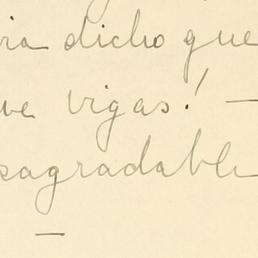 ria dicho que
ve vigas! —
sagradable
—